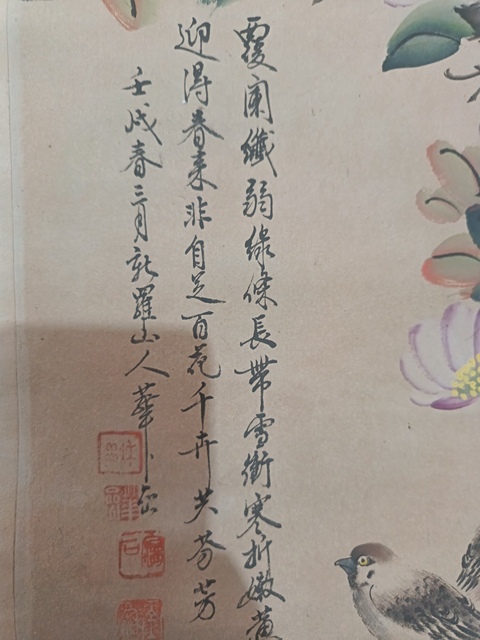 覆阑纖弱綠條長帶雪衝寒折嫩黃
迎得春来非自足百花千卉共芬芳
壬戌春三月新羅山人華喦